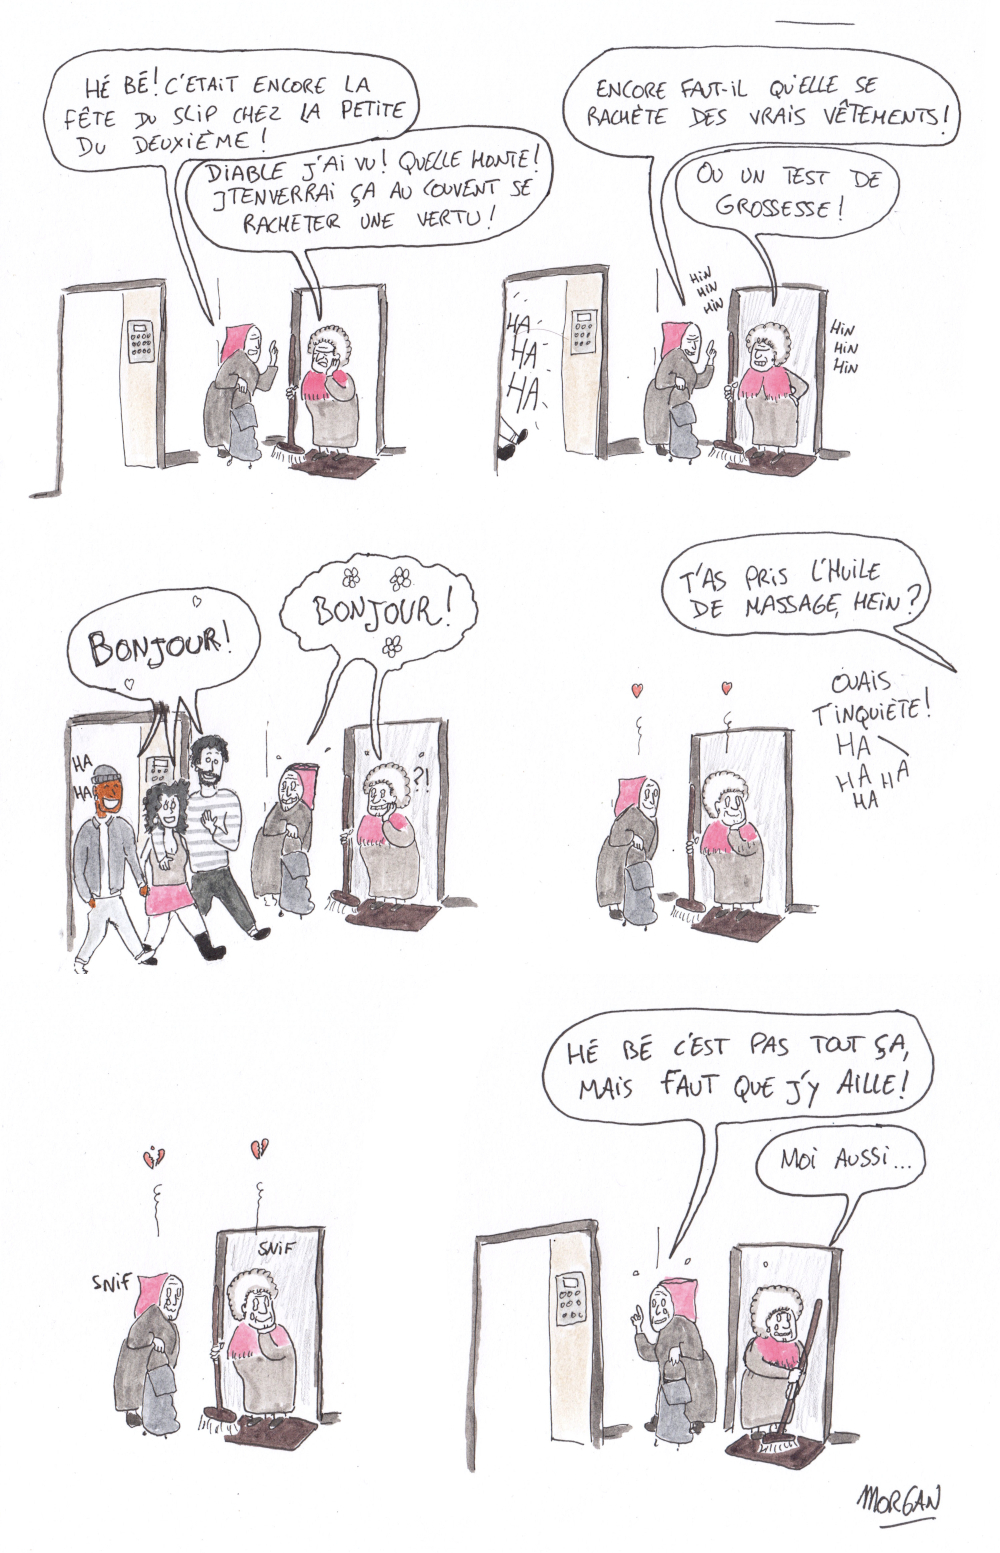 HÉ BÉ! C'ÉTAIT ENCORE LA
FÊTE DU SLIP CHEZ LA PETITE
DU DEUXIÈME!
DIABLE J'AI VU! QUELLE HONTE!
JTENVERRAI ÇA AU COUVENT SE
RACHETER UNE VERTU!
ENCORE FAUT-IL QU'ELLE SE
RACHÈTE DES VRAIS VÊTEMENTS!
OU UN TEST DE
GROSSESSE!
HA
HA
HA
HIN
HIN
HIN
HIN
HIN
HIN
BONJOUR!
BONJOUR!
HA
HA
?!
T'AS PRIS L'HUILE
DE MASSAGE, HEIN?
OUAIS
T'INQUIÈTE!
HA
HA HA
HA
SNIF
SNIF
HÉ BÉ C'EST PAS TOUT ÇA,
MAIS FAUT QUE J'Y AILLE!
MOI AUSSI...
MORGAN